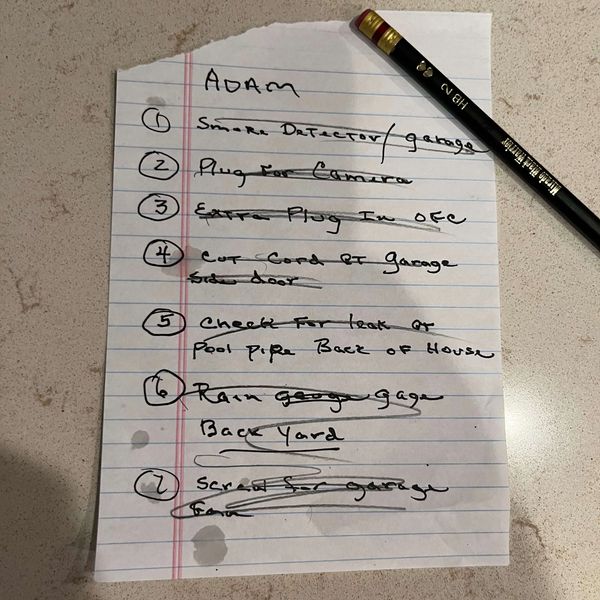 ADAM
① Smoke Detector/garage
② Plug For Camera
③ Extra Plug In OFC
④ Cut Cord at garage
Side door
⑤ Check For leak at
Pool pipe Back of House
⑥ Rain gauge gage
Back Yard
⑦ Screw for garage
HB 2